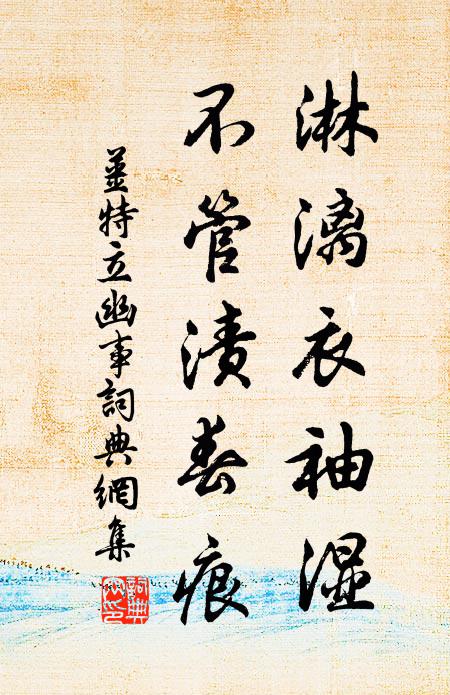 淋漓衣袖湿
不管渍春痕
姜特立幽事詞典網集